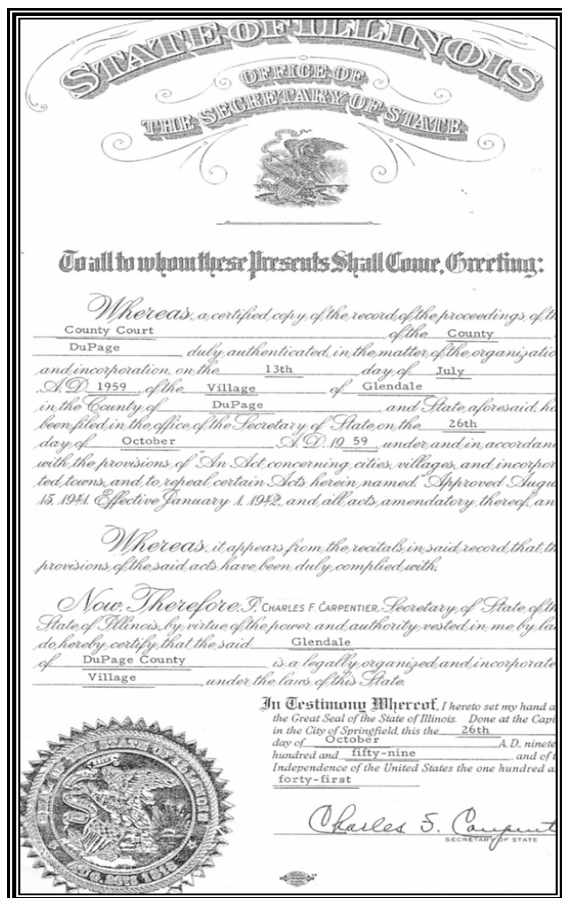 STATE OF ILLINOIS
OFFICE OF
THE SECRETARY OF STATE
To all to whom these Presents Shall Come, Greeting:
Whereas, a certified copy of the record of the proceedings of th
County Court of the County
DuPage duly authenticated in the matter of the organizatio
and incorporation on the 13th day of July
A.D. 1959, of the Village of Glendale
in the County of DuPage and State aforesaid, ha
been filed in the office of the Secretary of State on the 26th
day of October A.D. 19 59 under and in accordan
with the provisions of "An Act concerning cities, villages, and incorpor
ted towns, and to repeal certain Acts herein named." Approved Augu
15, 1941. Effective January 1, 1942, and all acts amendatory thereof, an
Whereas, it appears from the recitals in said record, that th
provisions of the said acts have been duly complied with,
Now Therefore, I, CHARLES F. CARPENTIER, Secretary of State of th
State of Illinois, by virtue of the power and authority vested in me by la
do hereby certify that the said Glendale
of DuPage County is a legally organized and incorporate
Village under the laws of this State.
In Testimony Whereof, I hereto set my hand a
the Great Seal of the State of Illinois. Done at the Capi
in the City of Springfield this the 26th
day of October A.D. ninete
hundred and fifty-nine and of t
Independence of the United States the one hundred a
forty-first
Charles F. Carpent
SECRETARY OF STATE
STATE OF ILLINOIS
AUG. 26TH 1818